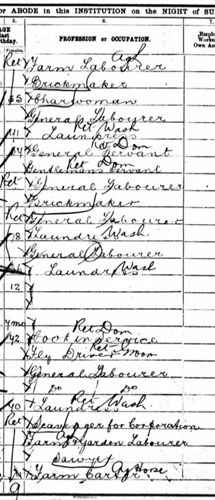 for ABODE in this INSTITUTION on the NIGHT of SU
5. 6. 7.
AGE last Birthday.
PROFESSION or OCCUPATION.
Employ
Worke
Own Acc
Females.
Ret Farm Labourer Agl
Brickmaker
Charwoman
General Labourer
Ret Wash
41 Laundress
Ret Dom
General Servant
Ret Dom
Gentlemans Servant
Ret General Labourer
Brickmaker
Ret General Labourer
78 Laundre Wash
General Labourer
Laundress Wash
12
7mo Ret Dom
42 Cook in Service
Ret
Fly Driver
General Labourer
Do Do
Ret Wash
40 Laundress
Ret Scavenger for Corporation
Farm & Garden Labourer
Sawyer
Ag Horse
Farm Carter
9